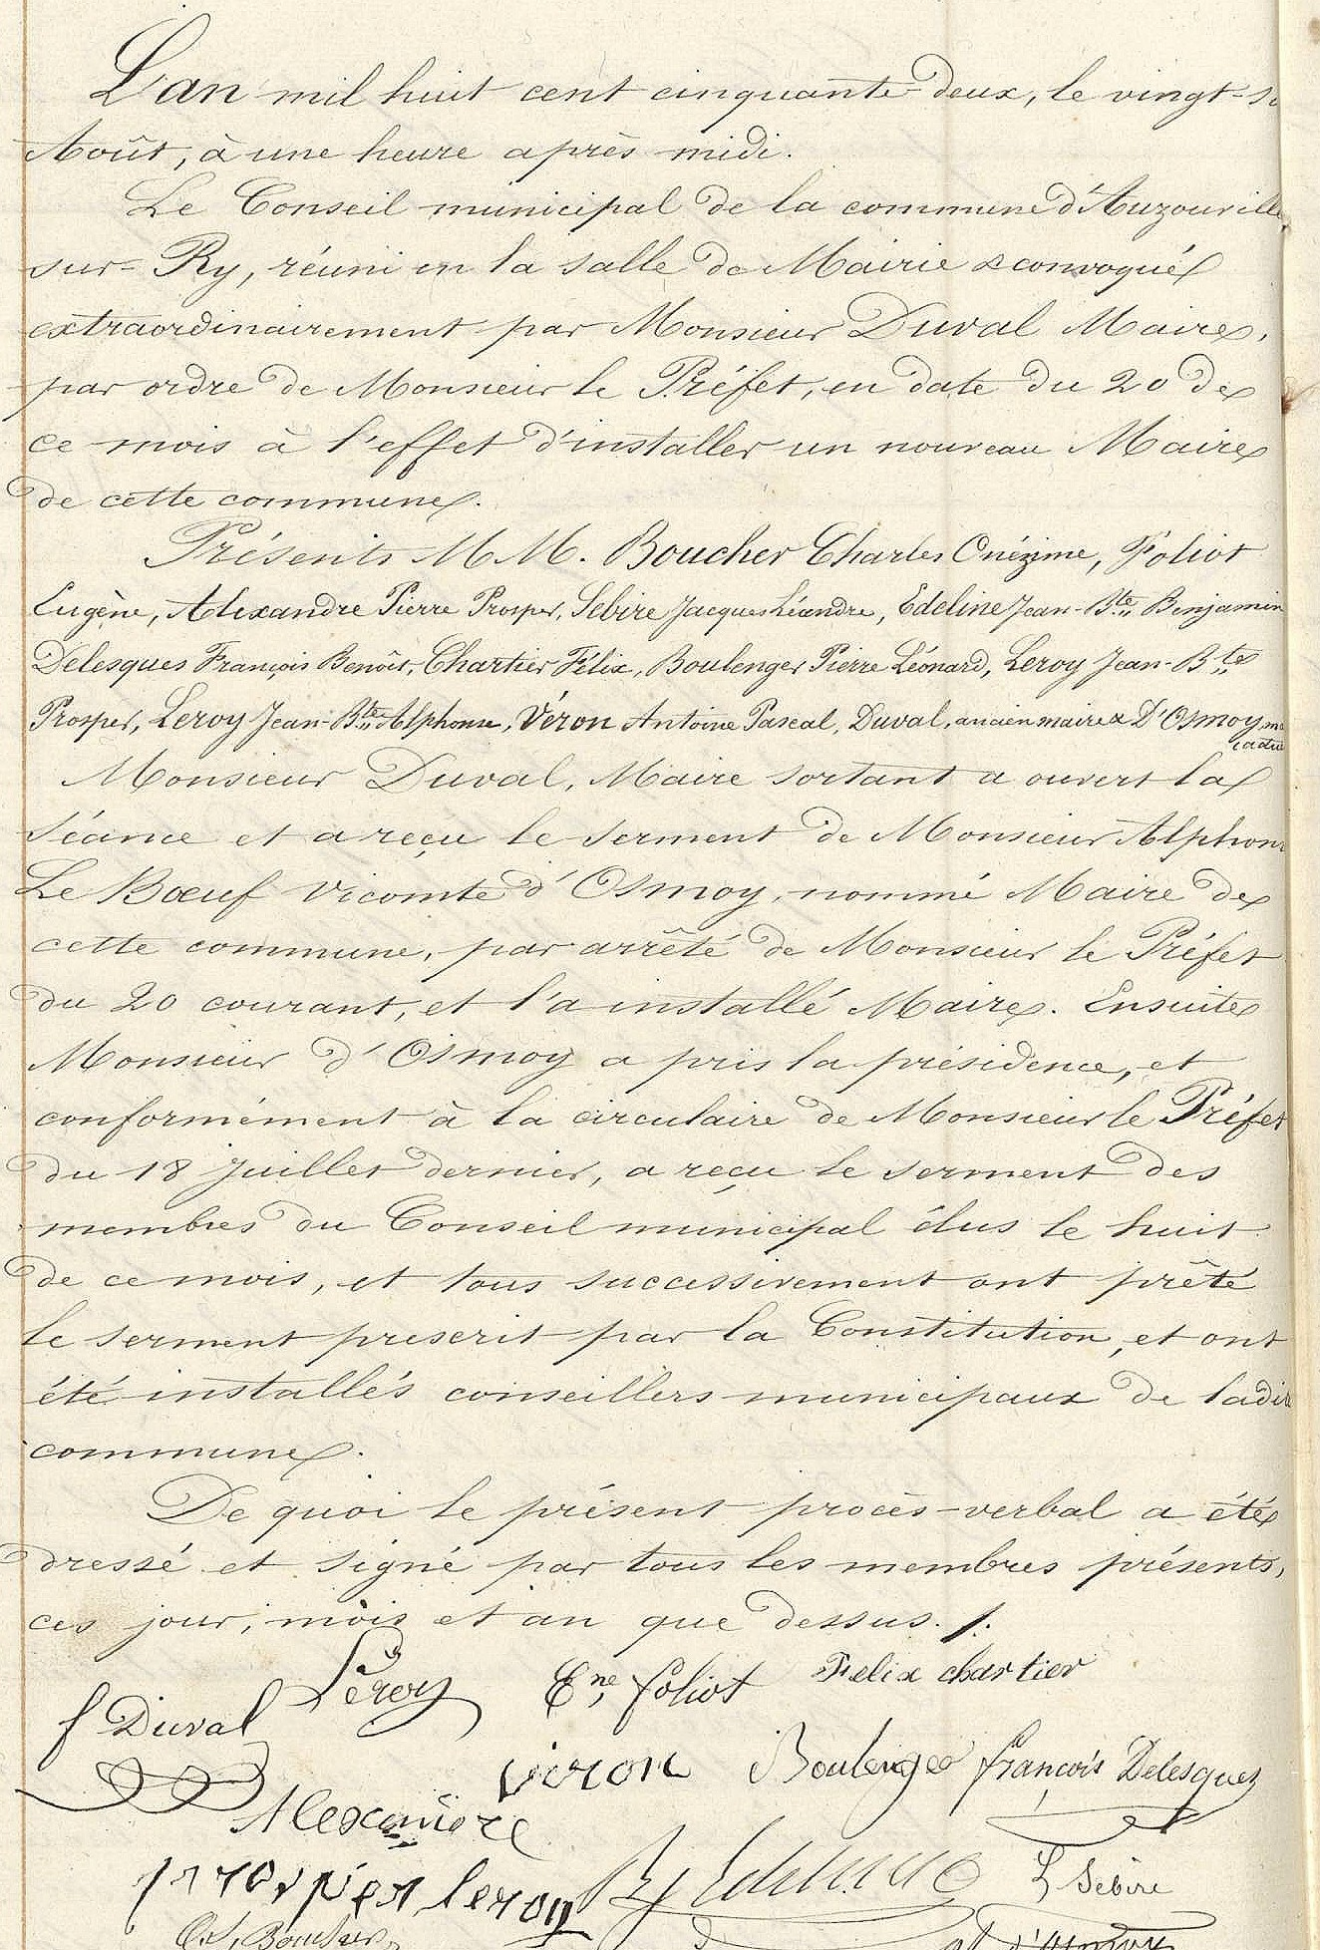 L'an mil huit cent cinquante-deux, le vingt-s
Août, à une heure après midi.
Le Conseil municipal de la commune d'Auzouville
sur-Ry, réuni en la salle de Mairie & convoqué
extraordinairement par Monsieur Duval Maire,
par ordre de Monsieur le Préfet, en date du 20 de
ce mois à l'effet d'installer un nouveau Maire
de cette commune.
Présents MM. Boucher Charles Onézime, Foliot
Eugène, Alexandre Pierre Prosper, Sebire Jacques Léandre, Edeline Jean-Bte Benjamin
Delesques François Benoît, Chartier Félix, Boulenger Pierre Léonard, Leroy Jean-Bte
Prosper, Leroy Jean-Bte Alphonse, Véron Antoine Pascal, Duval, ancien maire & D'Osmoy,
Monsieur Duval, Maire sortant a ouvert la
séance et a reçu le serment de Monsieur Alphon
Le Bœuf Vicomte d'Osmoy, nommé Maire de
cette commune, par arrêté de Monsieur le Préfet
du 20 courant, et l'a installé Maire. Ensuite
Monsieur d'Osmoy a pris la présidence, et
conformément à la circulaire de Monsieur le Préfet
du 18 Juillet dernier, a reçu le serment des
membres du Conseil municipal élus le huit
de ce mois, et tous successivement ont prêté
le serment prescrit par la Constitution, et ont
été installés conseillers municipaux de ladite
commune.
De quoi le présent procès-verbal a été
dressé et signé par tous les membres présents,
ces jour, mois et an que dessus./.
Leroy Ene foliot Felix chartier
f Duval
veron Boulenger françois Delesques
Alexandre
prosper leroy Bj Edeline L Sebire
Ch. Boucher d'Osmoy